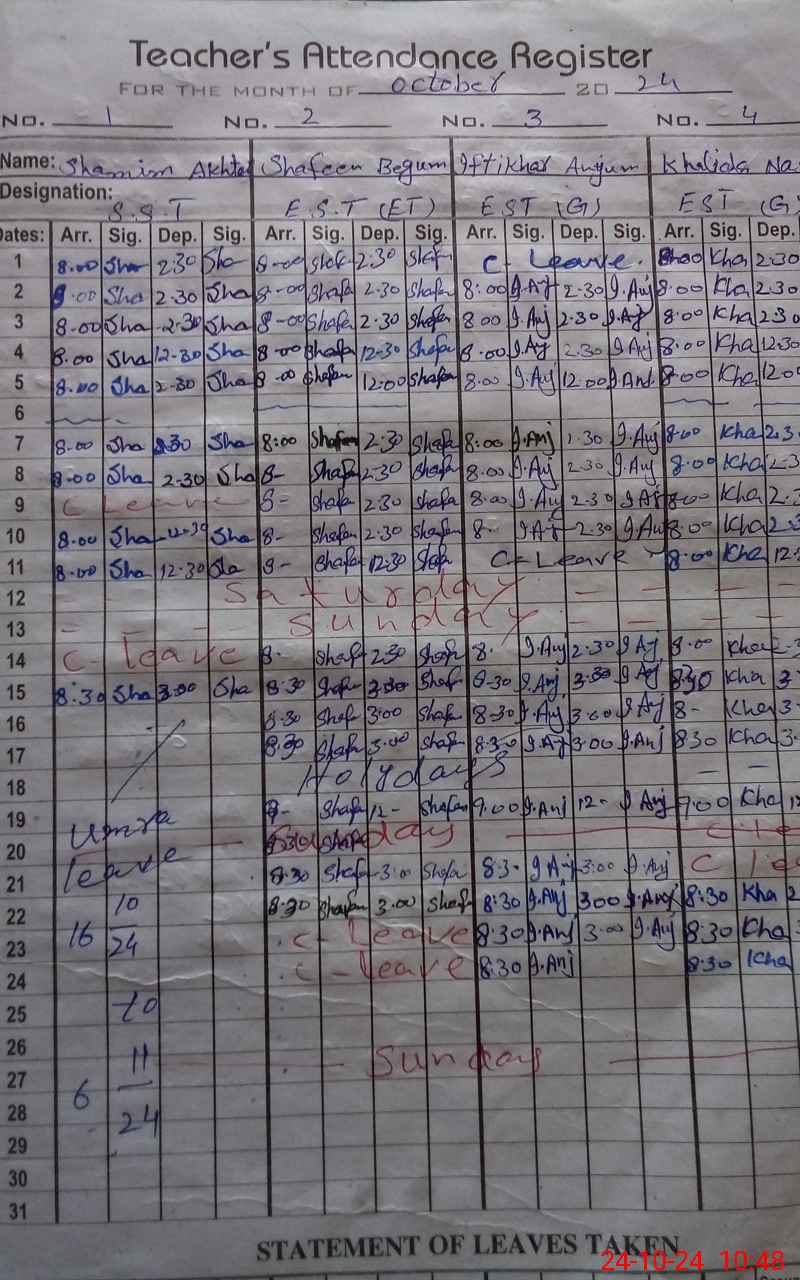 Teacher's Attendance Register
FOR THE MONTH OF October 20 24
No. 1 No. 2 No. 3 No. 4
Name: Shamim Akhta Shafeen Begum Iftikhar Anjum Khalida Na
Designation: S.S.T E.S.T (ET) EST (G) EST (G)
Dates: Arr. Sig. Dep. Sig. Arr. Sig. Dep. Sig. Arr. Sig. Dep. Sig. Arr. Sig. Dep.
1 8.00 Sha 2.30 Sha 8-00 Shafa 2.30 Shafa C- Leave. 8.00 Kha 2.30
2 8.00 Sha 2.30 Sha 8-00 Shafa 2.30 Shafa 8:00 I.Anj 2.30 I.Anj 8:00 Kha 2.30
3 8.00 Sha 2.30 Sha 8-00 Shafa 2.30 Shafa 8.00 I.Anj 2.30 I.Anj 8:00 Kha 2.30
4 8.00 Sha 12-30 Sha 8-00 Shafa 12-30 Shafa 8.00 I.Aj 2.30 I.Anj 8:00 Kha 12.30
5 8.00 Sha 2.30 Sha 8-00 Shafa 12:00 Shafa 8.00 I.Anj 12.00 I.Anj. 8:00 Kha 12.0
6
7 8.00 Sha 2.30 Sha 8:00 Shafa 2.30 Shafa 8:00 I.Anj 1.30 I.Anj 8.00 Kha 2.3
8 8.00 Sha 2.30 Sha 8- Shafa 2.30 Shafa 8.00 I.Anj 2.30 I.Anj 8:00 Kha 2.3
9 C Leave 8- Shafa 2.30 Shafa 8.00 I.Anj 2.30 I.Aj 8.00 Kha 2.3
10 8.00 Sha Sha 8- Shafa 2.30 Shafa 8- I.Aj 2.30 I.Anj 8.00 Kha 2.3
11 8.00 Sha 12.30 Sha 8- Shafa 12.30 Shafa C- Leave 8.00 Kha 12.
12 Saturday
13 Sunday
14 C- leave 8- Shafa 2.30 Shafa 8. I.Anj 2.30 I.Aj 8.00 Kha 2-3
15 8.30 Sha 3.00 Sha 8.30 Shafa 3.00 Shafa 8.30 I.Anj 3.30 I.Aj 8.30 Kha 3-
16 8.30 Shafa 3.00 Shafa 8-30 I.Anj 3.00 I.Anj 8- Kha 3.
17 8.30 Shafa 3.00 Shafa 8.30 I.Aj 3.00 I.Anj 8.30 Kha 3.
18 Holydays
19 8- Shafa 12- Shafa 9.00 I.Anj 12- I.Anj 9.00 Kha 12
Umra
20 Sunday
21 leave 8.30 Shafa 3:00 Shafa 8.30 I.Aj 3:00 I.Anj C lea
22 10 8.30 Shafa 3.00 Shafa 8:30 I.Anj 3.00 I.Anj 8:30 Kha 2
23 16 24 C- Leave 8.30 I.Anj 3.00 I.Anj 8.30 Kha
24 C- leave 8:30 I.Anj 8:30 Kha
25 to
26 11 Sunday
27 6
28 24
29
30
31
STATEMENT OF LEAVES TAKEN
24-10-24 10:48